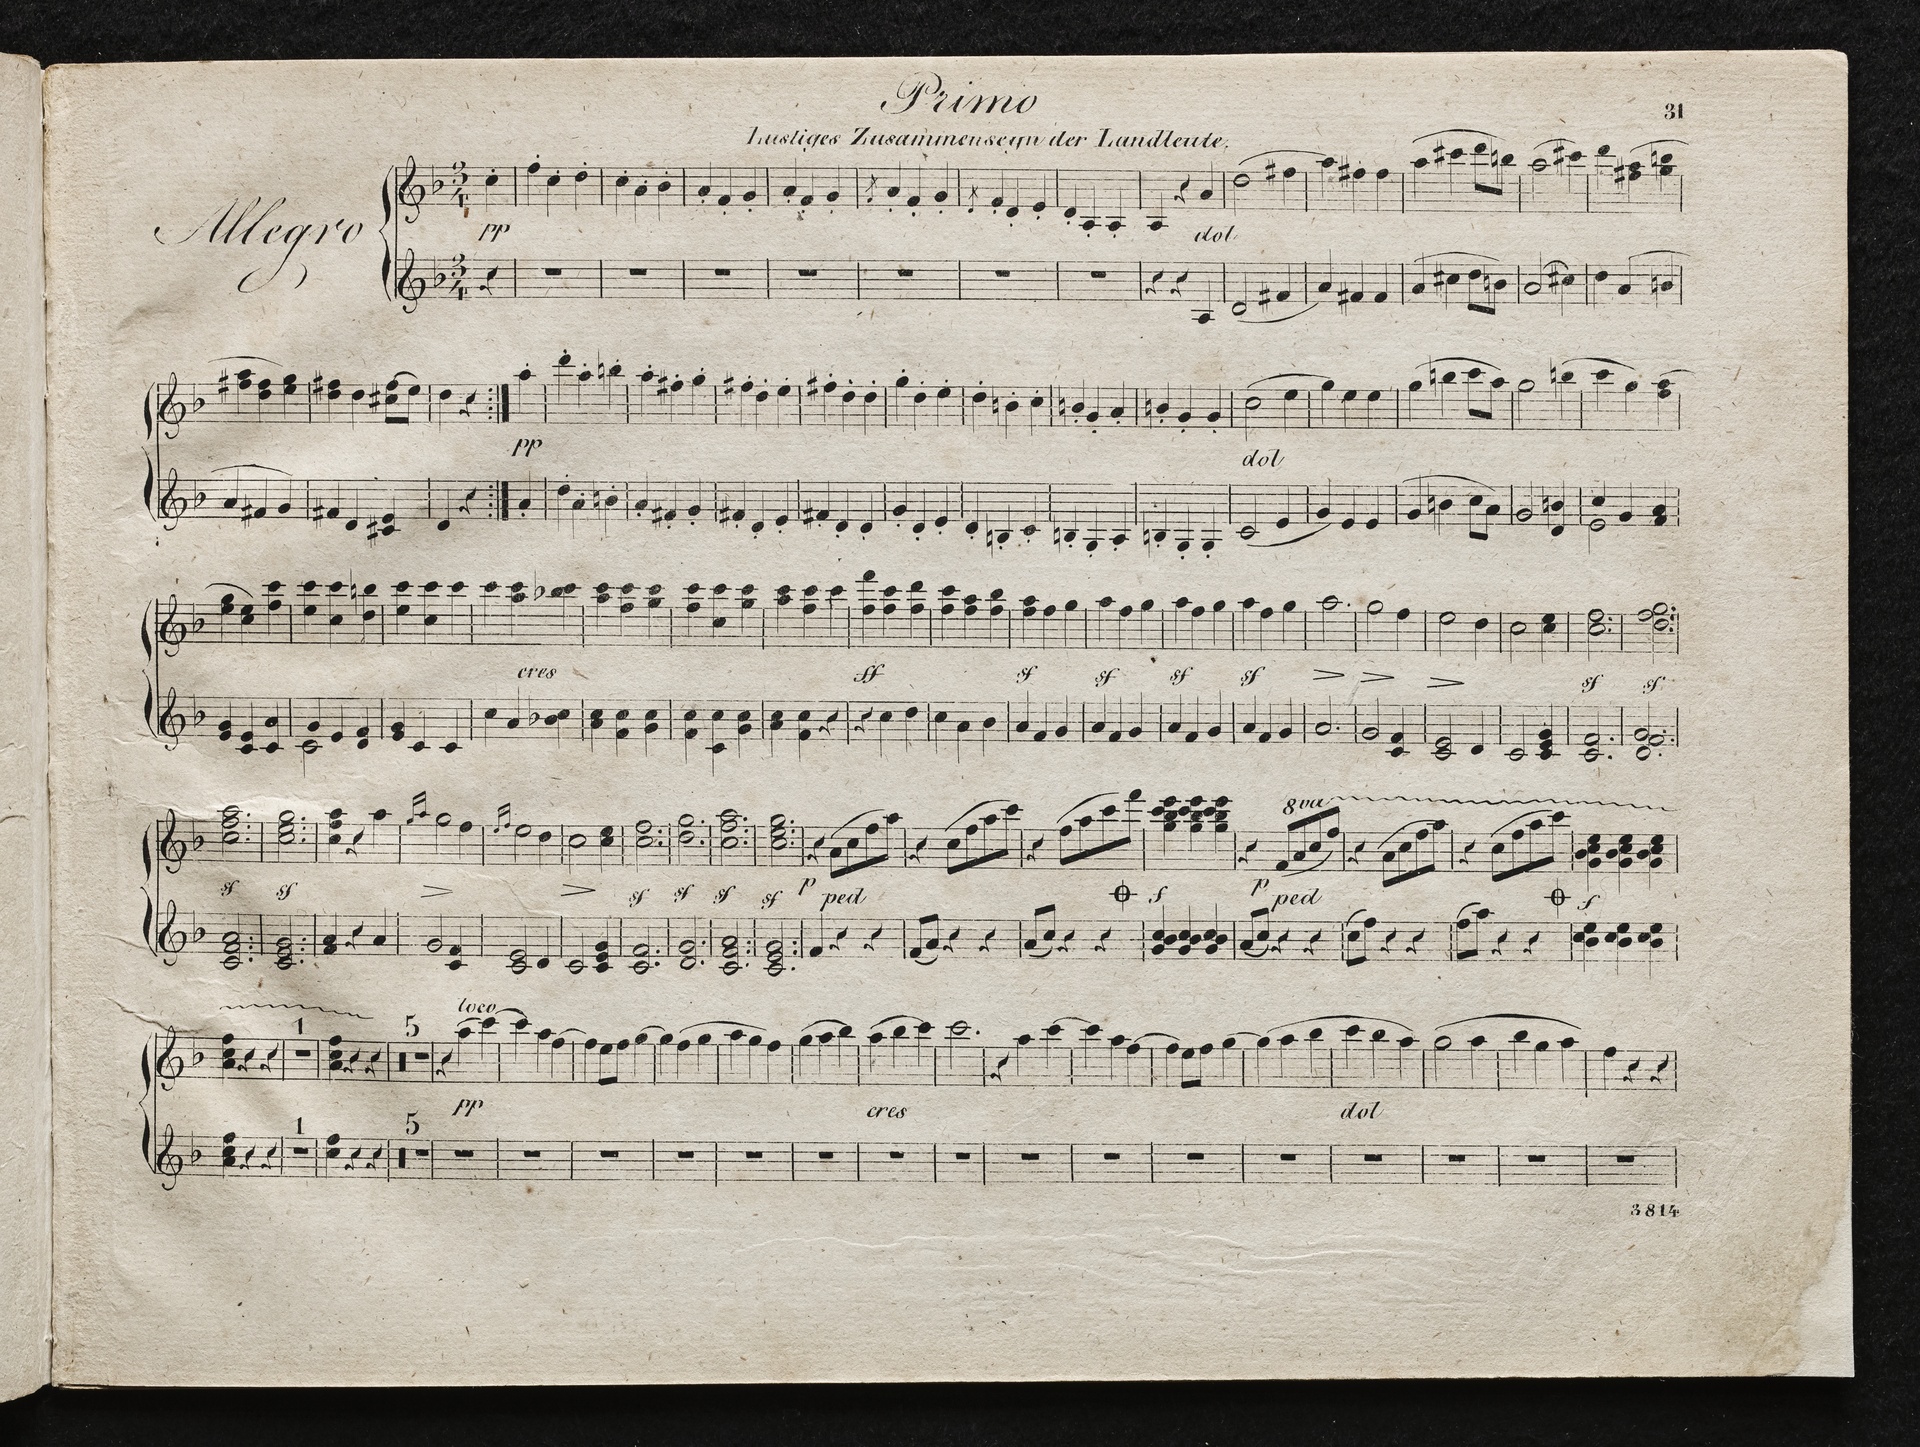 Primo
31
Lustiges Zusammenseyn der Landleute.
Allegro
3 4
pp
dol
3 4
pp
dol
cres
ff
sf
sf
sf
sf
sf
sf
8va
sf
sf
sf
sf
sf
sf
p
ped
f
p
ped
f
loco
1
5
pp
cres
dol
1
5
3814